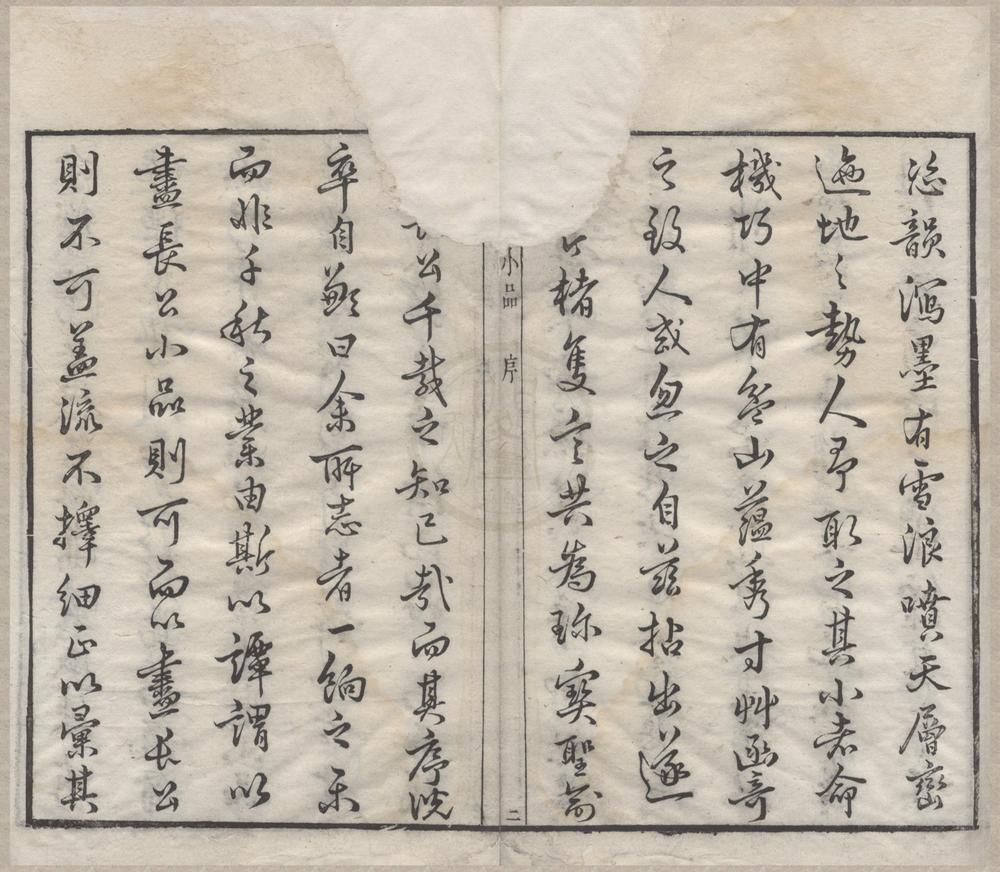 恣韻瀉墨有雪浪噴天層巒
迤地之勢人即取之其小者命
機巧中有盆山蘊秀寸艸函奇
之致人或忽之自茲拈出遂
楮隻言共為珍寶聖俞
公千載之知已哉而其序浼
率自顏曰余所志者一餉之樂
而非千秋之業由斯以譚謂以
盡長公小品則可而以盡長公
則不可蓋流不擇細正以彙其
小品 序 二